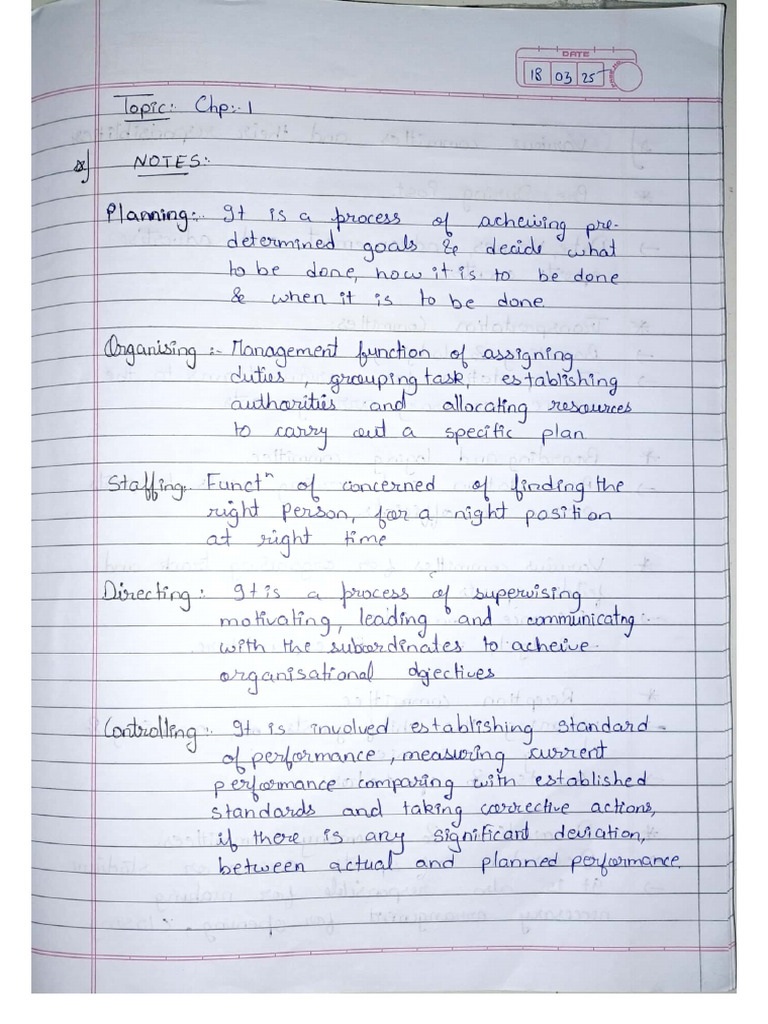 DATE
18 03 25
Topic:- Chp:-1
NOTES:-
Planning:- It is a process of acheiving pre-
determined goals & decide what
to be done, how it is to be done
& when it is to be done
Organising :- Management function of assigning
duties, grouping task, establishing
authorities and allocating resources
to carry out a specific plan
Staffing:- Functⁿ of concerned of finding the
right person, for a night position
at right time
Directing:- It is a process of supervising
motivating, leading and communicatng.
with the subordinates to acheive.
organisational objectives
Controlling:- It is involved establishing standard
of performance, measuring current
performance comparing with established
standards and taking corrective actions,
if there is any significant deviation,
between actual and planned performance.